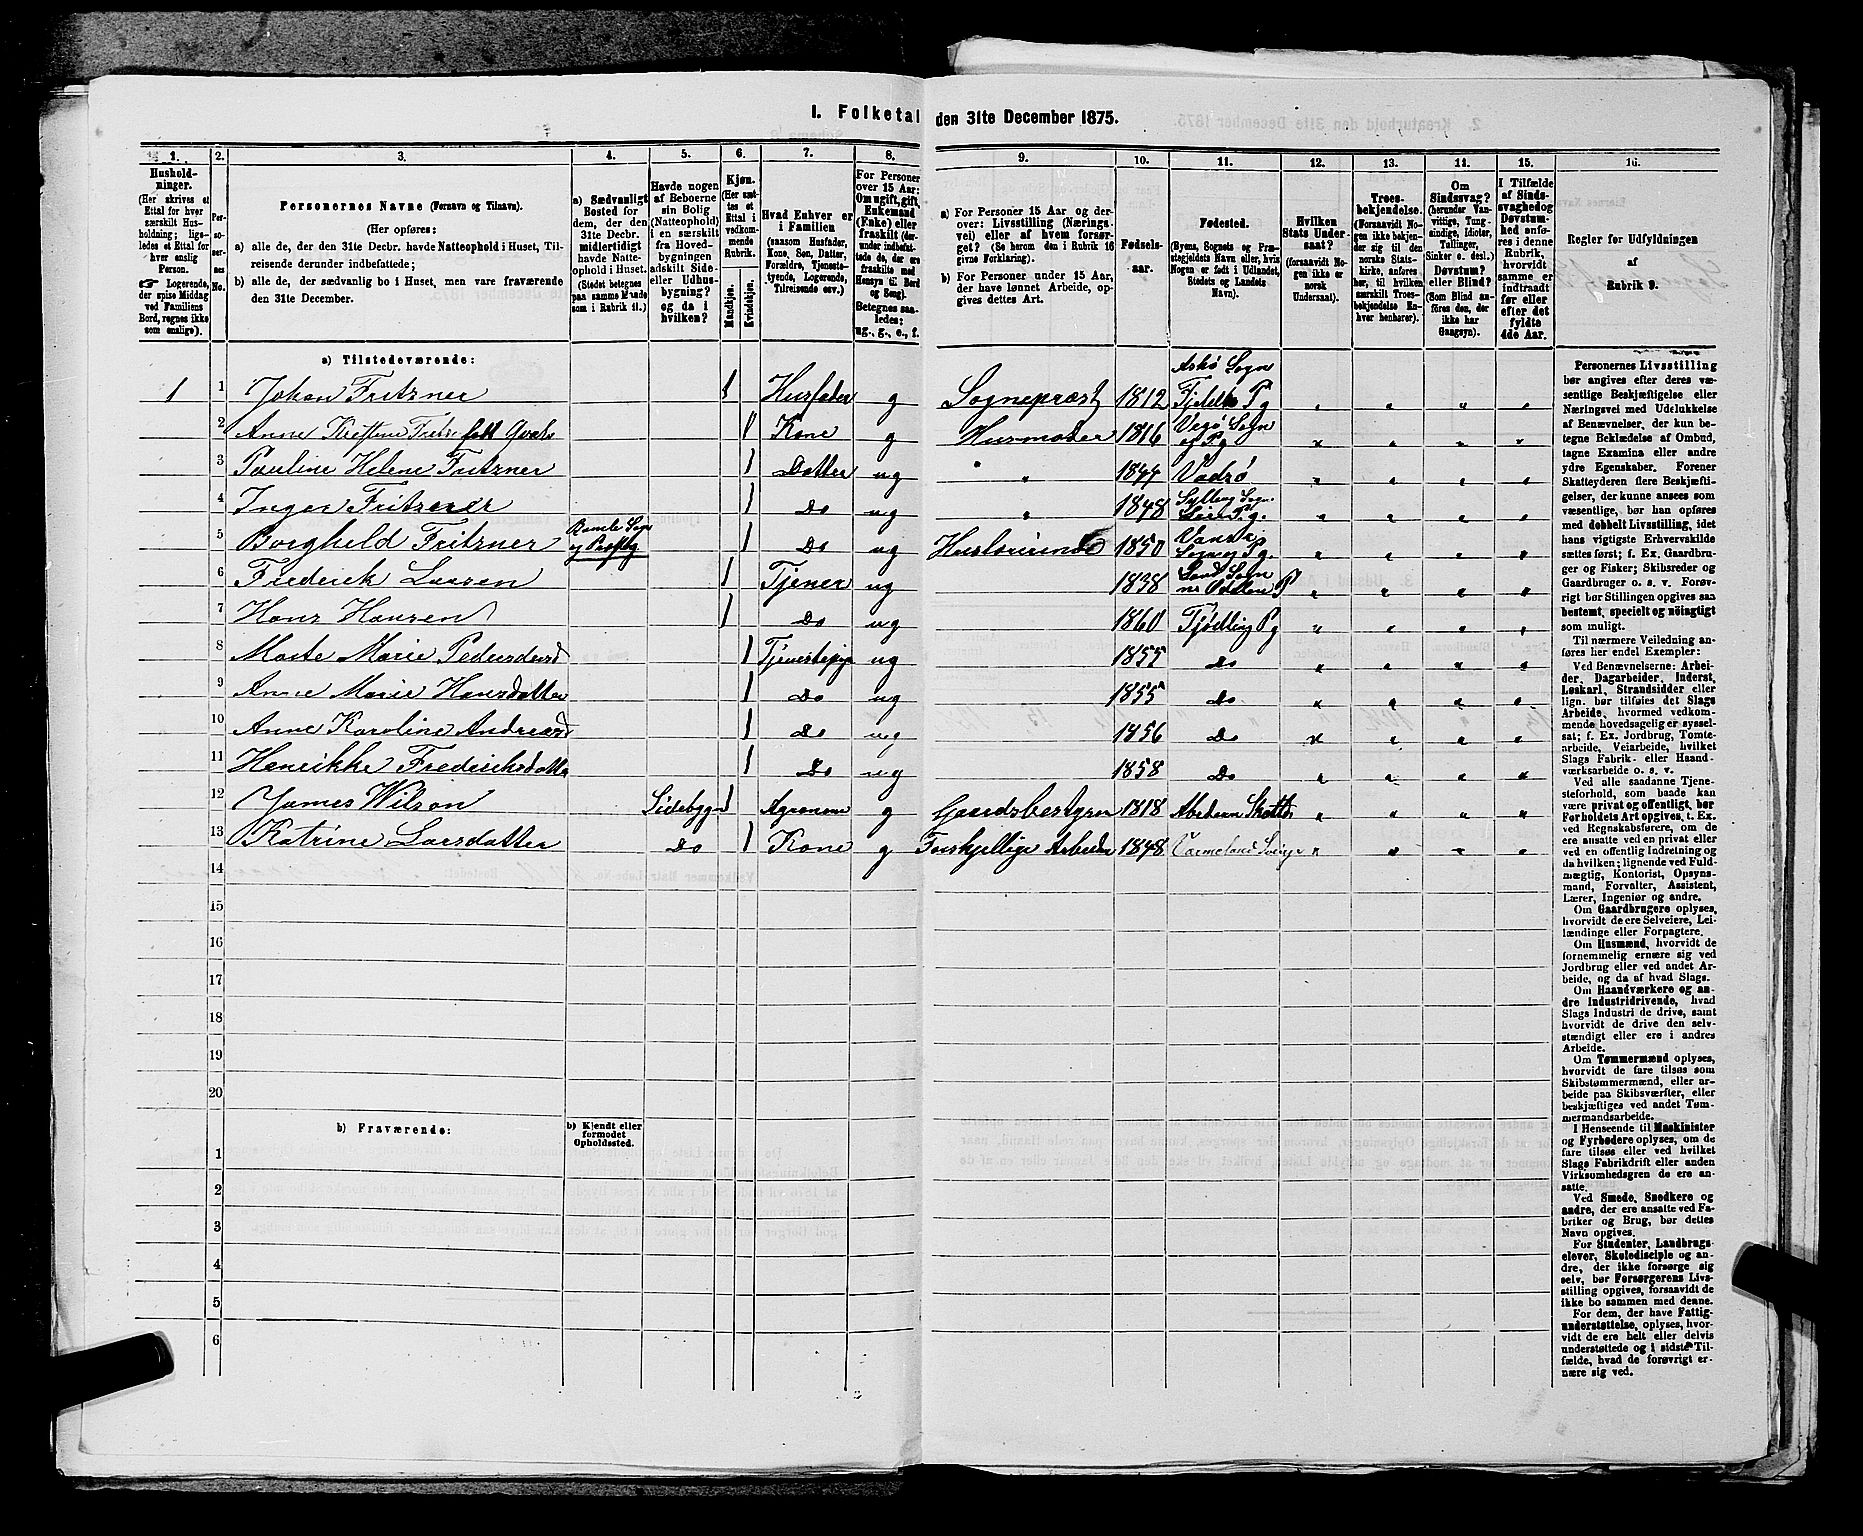 I. Folketal den 31te December 1875.
1. 2. 3. 4. 5. 6. 7. 8. 9. 10. 11. 12. 13. 14. 15. 16.
Hushold-
ninger.
(Her skrives et
Ettal for hver
særskilt Hus-
holdning; lige-
ledes et Ettal for
hver enslig
Person.
☞ Logerende,
der spise Middag
ved Familiens
Bord, regnes ikke
som enslige).
Per-
so-
ner-
nes
No.
Personernes Navne (Fornavn og Tilnavn).
(Her opføres:
a) alle de, der den 31te Decbr. havde Natteophold i Huset, Til-
reisende derunder indbefattede;
b) alle de, der sædvanlig bo i Huset, men vare fraværende
den 31te December.
a) Sædvanligt
Bosted for
dem, der den
31te Decbr.
midlertidigt
havde Natte-
ophold i Huset.
(Stedet betegnes
paa samme Maade
som i Rubrik 11.)
Havde nogen
af Beboerne
sin Bolig
(Natteophold)
i en særskilt
fra Hoved-
bygningen
adskilt Side-
eller Udhus-
bygning?
og da i
hvilken?
Kjøn.
(Her sæt-
tes et
Ettal i
vedkom-
mende
Rubrik.
Mandkjøn.
Kvindekjøn.
Hvad Enhver er
i Familien
(saasom Husfader,
Kone, Søn, Datter,
Forældre, Tjeneste-
tyende, Logerende,
Tilreisende osv.)
For Personer
over 15 Aar:
Om ugift, gift,
Enkemand
(Enke) eller
fraskilt (der-
under indbefat-
tede de, der ere
fraskilte med
Hensyn til Bord
og Seng).
Betegnes saa-
ledes:
ug., g., e., f.
a) For Personer 15 Aar og der-
over: Livsstilling (Nærings-
vei) eller af hvem forsør-
get? (Se herom den i Rubrik 16
givne Forklaring).
b) For Personer under 15 Aar,
der have lønnet Arbeide, op-
gives dettes Art.
Fødsels-
aar.
Fødested.
(Byens, Sognets og Præ-
stegjeldets Navn, eller, hvis
Nogen er født i Udlandet,
Stedets og Landets
Navn).
Hvilken
Stats Under-
saat?
(forsaavidt No-
gen ikke er
norsk
Undersaat).
Troes-
bekjendelse.
(Forsaavidt No-
gen ikke bekjen-
der sig til den
norske Stats-
kirke, anføres
her, til hvilken
særskilt Troes-
bekjendelse En-
hver henhører).
Om
Sindssvag?
(herunder Van-
vittige, Tung-
sindige, Idioter,
Tullinger,
Sinker o. desl.)
Døvstum?
eller Blind?
(Som Blind an-
føres den, der
ikke har
Gangsyn).
I Tilfælde
af Sinds-
svaghed og
Døvstum-
hed anføres
i denne
Rubrik,
hvorvidt
samme er
indtraadt
før eller
efter det
fyldte
4de Aar.
Regler for Udfyldningen
af
Rubrik 9.
a) Tilstedeværende:
1 1 Johan Fritzner Husfader g Sogneprest 1812 Askø Sogn Pg
2 Anne Kristine g Kone Husmoder 1816 Vegø Sogn og Pg
3 Pauline Helene Fritzner Datter ug 1844 Vadsø
4 Inger Fritzner Do ug 1848 Sylling Sogn Lier Pg.
5 Borghild Fritzner Bamle Sogn og Do ug 1850 Vanse Sogn og Pg.
6 Frederik Larsen Tjener ug 1838
7 Hans Hansen Do ug 1860 Tjødling Pg
8 Marte Marie ug 1855 Do
9 Anne Marie Hansdatter Do ug 1855 Do
10 Anne Karoline Do ug 1856 Do
11 Henrikke Frederiksdatter Do ug 1858 Do
12 James Wilson Sidebygn Agronom g Gaardsbestyrer 1818
13 Katrine Larsdatter Do Kone g Forskjellige Arbeider 1848 Vermeland Sverige
14
15
16
17
18
19
20
b) Fraværende:
b) Kjendt eller
formodet
Opholdssted.
1
2
3
4
5
6
Personernes Livsstilling
bør angives efter deres væ-
sentlige Beskjæftigelse eller
Næringsvei med Udelukkelse
af Benævnelser, der kun be-
tegne Beklædelse af Ombud,
tagne Examina eller andre
ydre Egenskaber. Forener
Skatteyderen flere Beskjæfti-
gelser, der kunne ansees som
væsentlige, bør han opføres
med dobbelt Livsstilling, idet
hans vigtigste Erhvervskilde
sættes først; f. Ex. Gaardbru-
ger og Fisker; Skibsreder og
Gaardbruger o. s. v. Forøv-
rigt bør Stillingen opgives saa
bestemt, specielt og nøiagtigt
som muligt.
Til nærmere Veiledning an-
føres her endel Exempler:
Ved Benævnelserne: Arbei-
der, Dagarbeider, Inderst,
Løskarl, Strandsidder eller
lign. bør tilføies det Slags
Arbeide, hvormed vedkom-
mende hovedsagelig er syssel-
sat; f. Ex. Jordbrug, Tomte-
arbeide, Veiarbeide, hvilket
Slags Fabrik- eller Haand-
værksarbeide o. s. v.
Ved alle saadanne Tjene-
steforhold, som baade kan
være privat og offentligt, bør
Forholdets Art opgives, t. Ex.
ved Regnskabsførere, om de
ere ansatte ved en privat eller
ved en offentlig Indretning og
da hvilken; lignende ved Fuld-
mægtig, Kontorist, Opsyns-
mand, Forvalter, Assistent,
Lærer, Ingeniør og andre.
Om Gaardbrugere oplyses,
hvorvidt de ere Selveiere, Lei-
lændinge eller Forpagtere.
Om Husmænd, hvorvidt de
fornemmelig ernære sig ved
Jordbrug eller ved andet Ar-
beide, og da af hvad Slags.
Om Haandværkere og an-
dre Industridrivende, hvad
Slags Industri de drive, samt
hvorvidt de drive den selv-
stændigt eller ere i andres
Arbeide.
Om Tømmermænd oplyses,
hvorvidt de fare tilsøs som
Skibstømmermænd, eller ar-
beide paa Skibsværfter, eller
beskjæftiges ved andet Tøm-
mermandsarbeide.
I Henseende til Maskinister
og Fyrbødere oplyses, om de
fare tilsøs eller ved hvilket
Slags Fabrikdrift eller anden
Virksomhedsgren de ere an-
satte.
Ved Smede, Snedkere og
andre, der ere ansatte ved Fa-
briker og Brug, bør dettes
Navn opgives.
For Studenter, Landbrugs-
elever, Skoledisciple og an-
dre, der ikke forsørge sig
selv, bør Forsørgerens Livs-
stilling opgives, forsaavidt de
ikke bo sammen med denne.
For dem, der have Fattig-
understøttelse, oplyses, hvor-
vidt de ere helt eller delvis
understøttede og i sidste Til-
fælde, hvad de forøvrigt er-
nære sig ved.